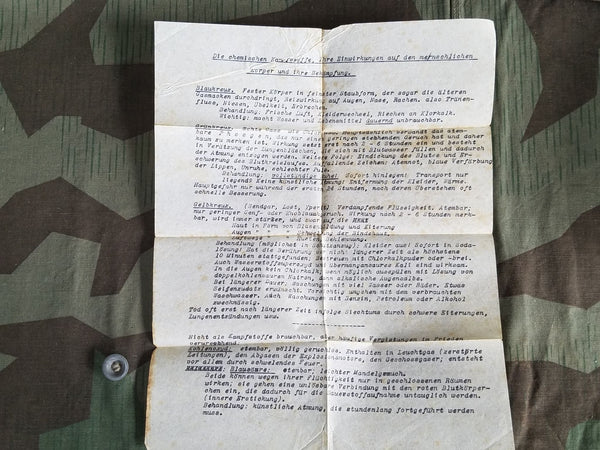 Die chemischen Kampfstoffe, ihre Einwirkungen auf den menschlichen
Körper und ihre Bekämpfung.
Blaukreuz. Fester Körper in feinster Staubform, der sogar die älteren
Gasmasken durchdringt, Reizwirkung auf Augen, Nase, Rachen. also Tränen-
fluss, Niesen, Übelkeit, Erbrechen.
Behandlung: Frische Luft, Kleiderwechsel, Riechen an Klorkalk.
Wichtig: macht Wasser und Lebensmittel dauernd unbrauchbar.
Grünkreuz.
bare
kaum zu merken ist. Wirkung setzt erst nach 2 - 6 Stunden ein und besteht
in Verätzung der Lungenbläschen, die sich mit Blutwasser füllen und dadurch
der Atmung entzogen werden. Weitere Folge: Eindickung des Blutes und Er-
schwerung des Blutkreislaufes. Auffallende Zeichen: Atemnot, blaue Verfärbung
der Lippen, Unruhe, schlechter Puls.
Behandlung: vollständige Ruhe! Sofort hinlegen! Transport nur
liegend! Keine künstliche Atmung! Entfernung der Kleider, Wärme.
Hauptgefahr nur während der ersten 24 Stunden, nach deren Überstehen oft
schnelle Besserung.
Gelbkreuz. (Senfgas, Lost, Yperit) Verdampfende Flüssigkeit. Atembar;
nur geringer Senf- oder Knoblauchgeruch. Wirkung nach 2 - 6 Stunden merk-
bar, wird immer stärker, und zwar auf die
Haut in Form von Blasenbildung und Eiterung
Augen " " " Schwellung der Bindehaut,
Luftwege " " " Husten, Schleimung.
Behandlung (möglichst im Schutzanzug): Kleider aus! Sofort in Soda-
lösung! Hat die Berührung mit nicht längerer Zeit als höchstens
10 Minuten stattgefunden, Bestreuen mit Chlorkalkpuder oder -brei.
Auch Wasserstoffsuperoxyd und übermangansaures Kali sind wirksam.
In die Augen kein Chlorkalk, wenn möglich ausspülen mit Lösung von
doppelkohlensauren Natron, dann alkalische Augensalbe.
Bei längerer Dauer, Waschungen mit viel Wasser oder Bäder. Etwas
Seifenzusatz erwünscht. Vorsichtig umgehen mit dem verbrauchten
Waschwasser. Auch Waschungen mit Benzin, Petroleum oder Alkohol
zweckmässig.
Tod oft erst nach längerer Zeit infolge Siechtums durch schwere Eiterungen,
Lungenentzündungen usw.
Nicht als Kampfstoffe brauchbar, aber häufige Vergiftungen im Frieden
verursachend
Kohlenoxyd: atembar, völlig geruchlos. Enthalten in Leuchtgas (zerstörte
Leitungen), den Abgasen der Explosionsmotore, den Geschossgasen; entsteht
vor allem durch schwelendes Feuer.
Blausäure: atembar; leichter Mandelgeruch.
Beide können wegen ihrer Flüchtigkeit nur in geschlossenen Räumen
wirken; sie gehen eine unlösbare Verbindung mit den roten Blutkörper-
chen ein, die dadurch für die Sauerstoffaufnahme untauglich werden.
(innere Erstickung).
Behandlung: künstliche Atmung, die stundenlang fortgeführt werden
muss.